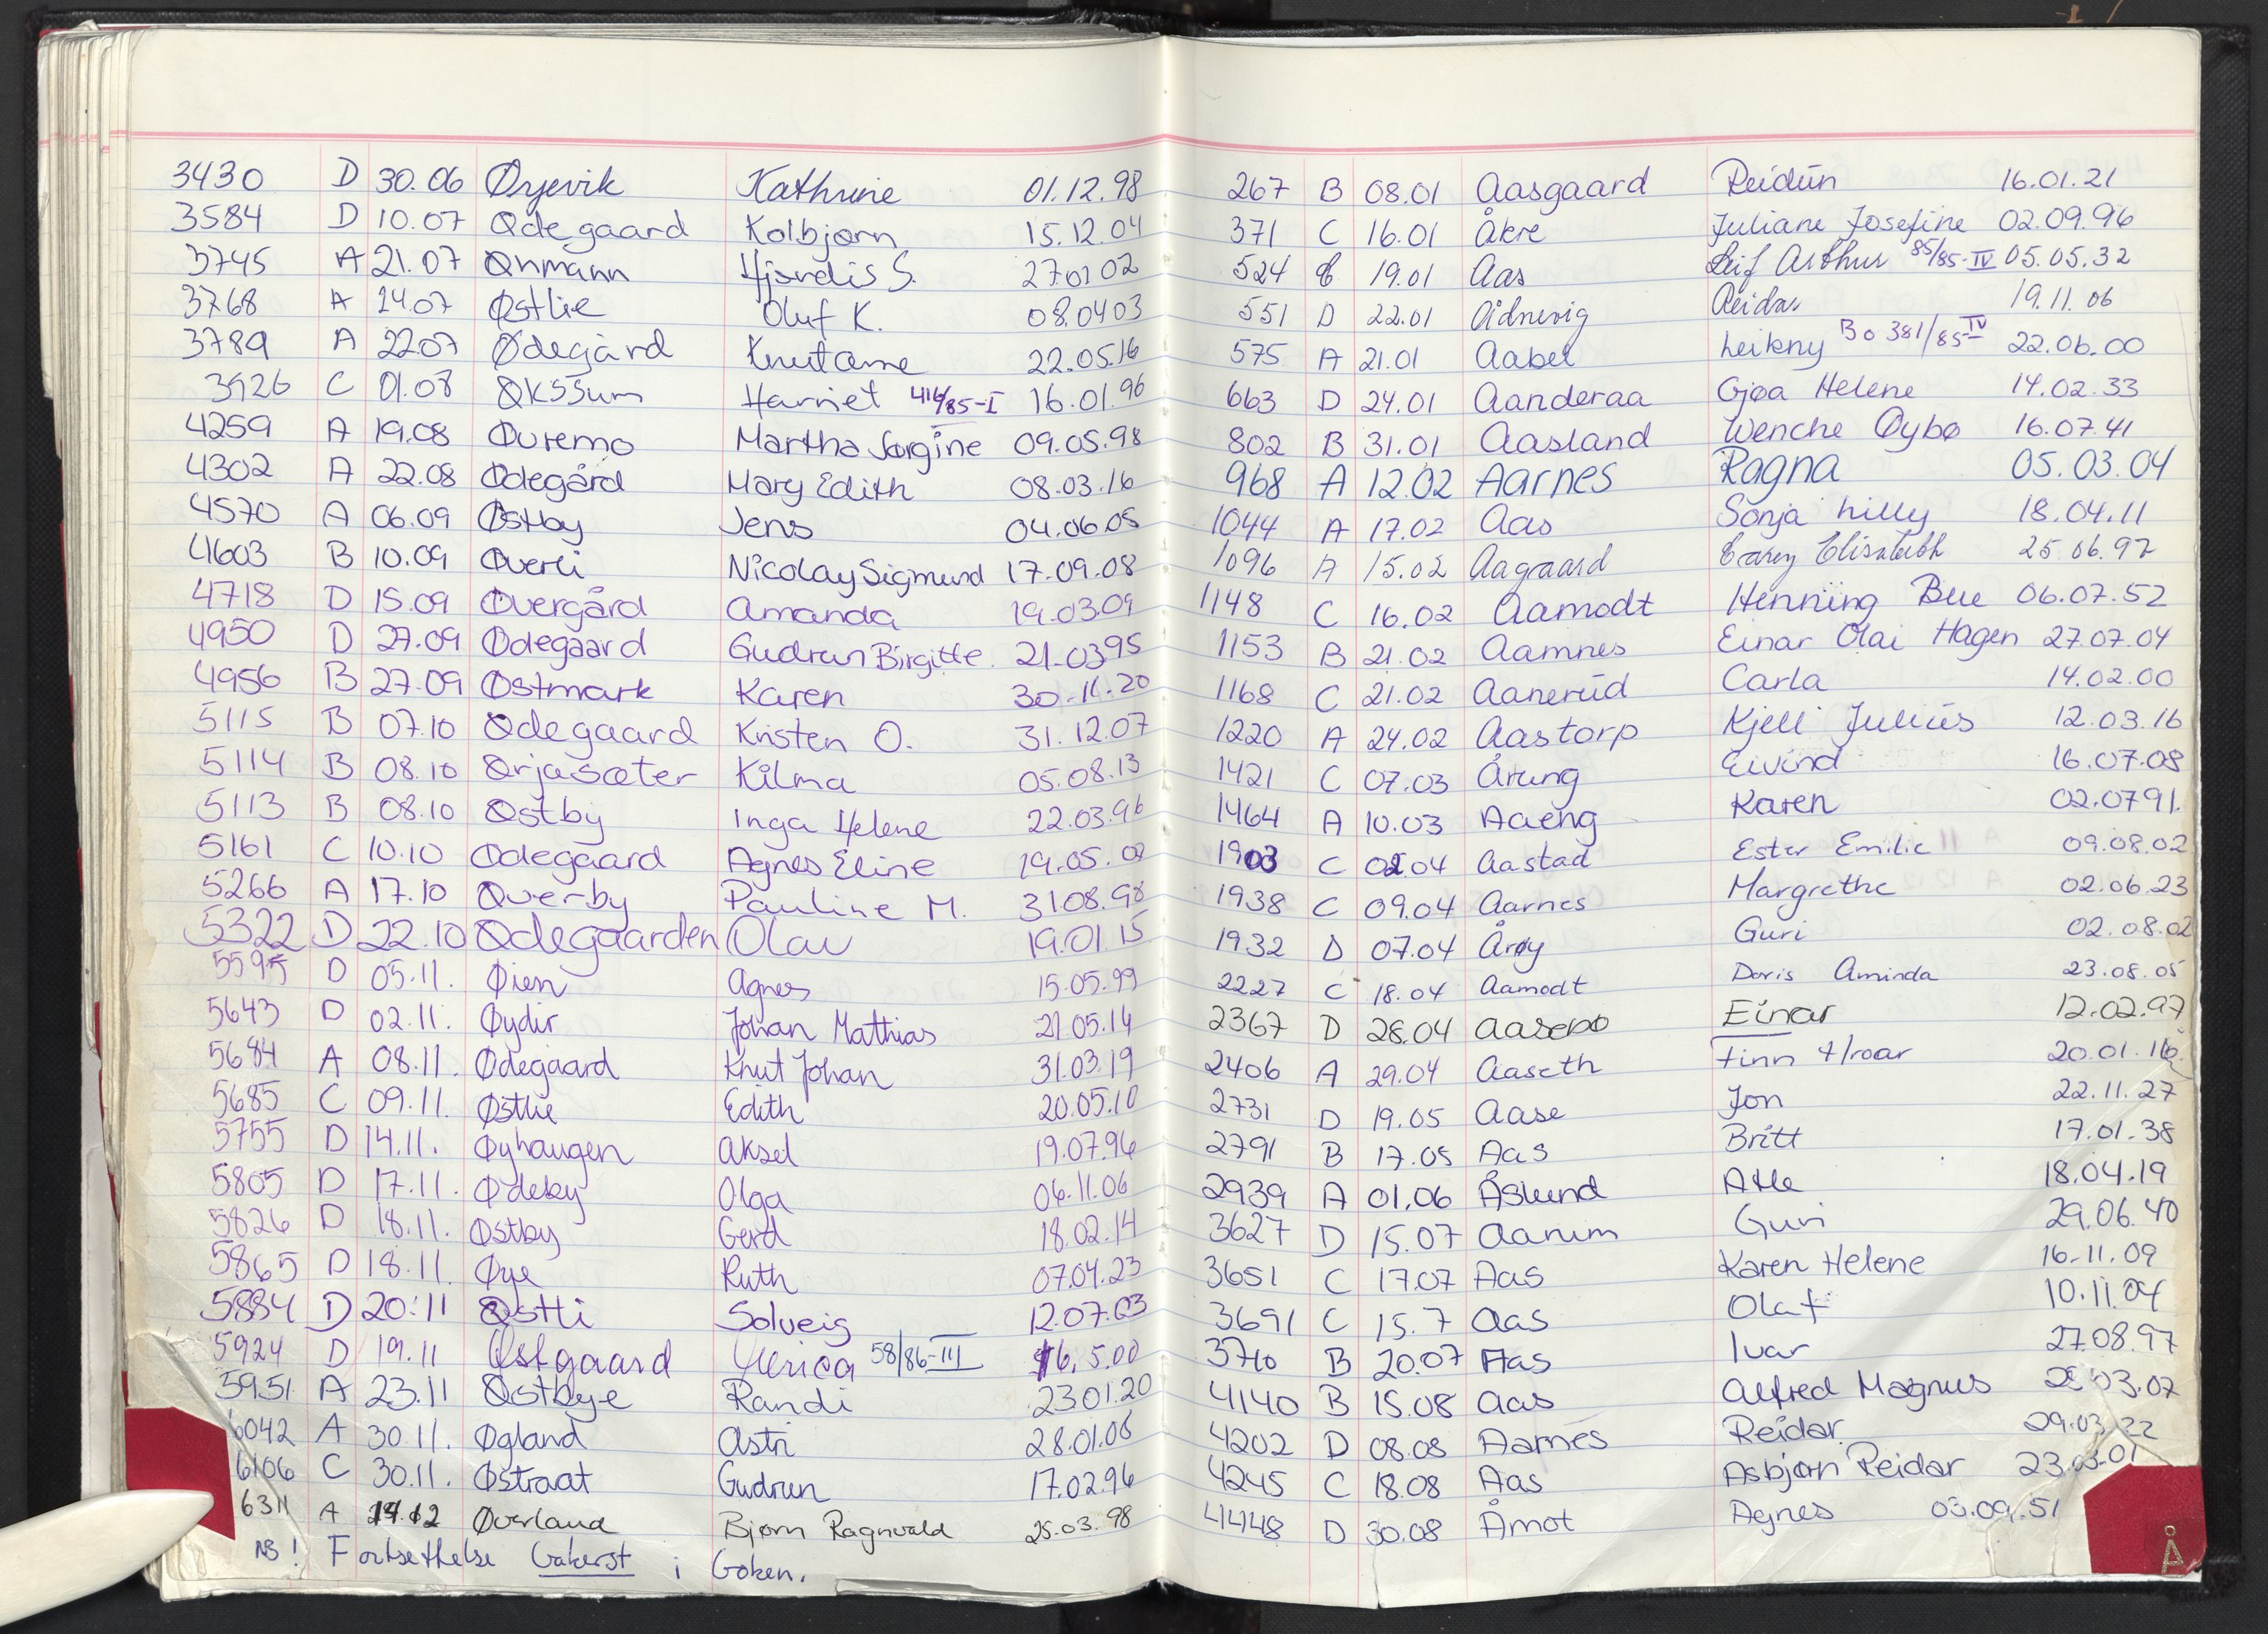 3430 D 30.06 Øyevik Kathrine 01.12.98
3584 D 10.07 Ødegaard Kolbjørn 15.12.04
3745 A 21.07 Øhmann Hjørdis S. 270102
3768 A 24.07 Østlie Oluf K. 08.0403
3789 A 2207 Ødegård Knut Arne 22.05.16
3926 C 01.08 Økssum Harriet 416/85-I 16.01.96
4259 A 19.08 Øvremo Martha Jørgine 09.05.98
4302 A 22.08 Ødegård Mary Edith 08.03.16
4570 A 06.09 Østby Jens 04.06.05
4603 B 10.09 Øverli Nicolay Sigmund 17.09.08
4718 D 15.09 Øvergård Amanda 19.0309
4950 D 27.09 Ødegaard Gudrun Birgitte. 21-0395
4956 B 27.09 Østmark Karen 30.11.20
5115 B 07.10 Ødegaard Kristen O. 31.12.07
5114 B 08.10 Ørjasæter Kilma 05.08.13
5113 B 08.10 Østby Inga Helene 22.03.96
5161 C 10.10 Ødegaard Agnes Eline 19.05.02
5266 A 17.10 Øverby Pauline M. 3108.98
5322 D 22.10 Ødegaarden Olav 19.01.15
5595 D 05.11. Øien Agnes 15.05.99
5643 D 02.11. Øydir Johan Mathias 21.05.14
5684 A 08.11. Ødegaard Knut Johan 31.03.19
5685 C 09.11. Østlie Edith 20.05.10
5755 D 14.11. Øyhaugen Aksel 19.07.96
5805 D 17.11. Ødeby Olga 06.11.06
5826 D 18.11. Østby Gerd 18.02.14
5865 D 18.11. Øye Ruth 07.04.23
5884 D 20.11 Østli Solveig 12.07.03
5924 D 19.11 Østgaard 58/86-III 16.5.00
5951 A 23.11 Østbye Randi 2301.20
6042 A 30.11. Øgland Astri 28.01.06
6106 C 30.11. Østraat Gudrun 17.02.96
6311 A 14.12 Øverland Bjørn Ragnvald 25.03.98
NB! Fortsettelse bakerst i boken.
267 B 08.01 Aasgaard Reidun 16.01.21
371 C 16.01 Åkre Juliane Josefine 02.09.96
524 C 19.01 Aas Leif Arthur 85/85-IV 05.05.32
551 D 22.01 Reidar 19.11.06
575 A 21.01 Aabel Leikny Bo 381/85-IV 22.06.00
663 D 24.01 Aanderaa Gjøa Helene 14.02.33
802 B 31.01 Aasland Wenche Øybø 16.07.41
968 A 12.02 Aarnes Ragna 05.03.04
1044 A 17.02 Aas Sonja Lilly 18.04.11
1096 A 15.02 Aagaard Elisabeth 25.06.97
1148 C 16.02 Aamodt Henning Bue 06.07.52
1153 B 21.02 Aamnes Einar Olai Hagen 27.07.04
1168 C 21.02 Aanerud Carla 14.02.00
1220 A 24.02 Aastorp Kjell Julius 12.03.16
1421 C 07.03 Årung Eivind 16.07.08
1464 A 10.03 Aaeng Karen 02.0791.
1903 C 02.04 Aastad Ester Emilie 09.08.02
1938 C 09.04 Aarnes Margrethe 02.06.23
1932 D 07.04 Årøy Guri 02.08.02
2227 C 18.04 Aamodt Doris Aminda 23.08.05
2367 D 28.04 Aasebø Einar 12.02.97
2406 A 29.04 Aaseth Finn Hroar 20.01.16
2731 D 19.05 Aase Jon 22.11.27
2791 B 17.05 Aas Britt 17.01.38
2939 A 01.06 Åslund Atle 18.04.19
3627 D 15.07 Aarum Guri 29.06.40
3651 C 17.07 Aas Karen Helene 16.11.09
3691 C 15.7 Aas Olaf 10.11.04
3710 B 20.07 Aas Ivar 27.08.97
4140 B 15.08 Aas Alfred Magnus 03.07
4202 D 08.08 Aarnes Reidar 29.03.22
4245 C 18.08 Aas Asbjørn Reidar 23.03.01
4448 D 30.08 Åmot Agnes 03.09.51
Å